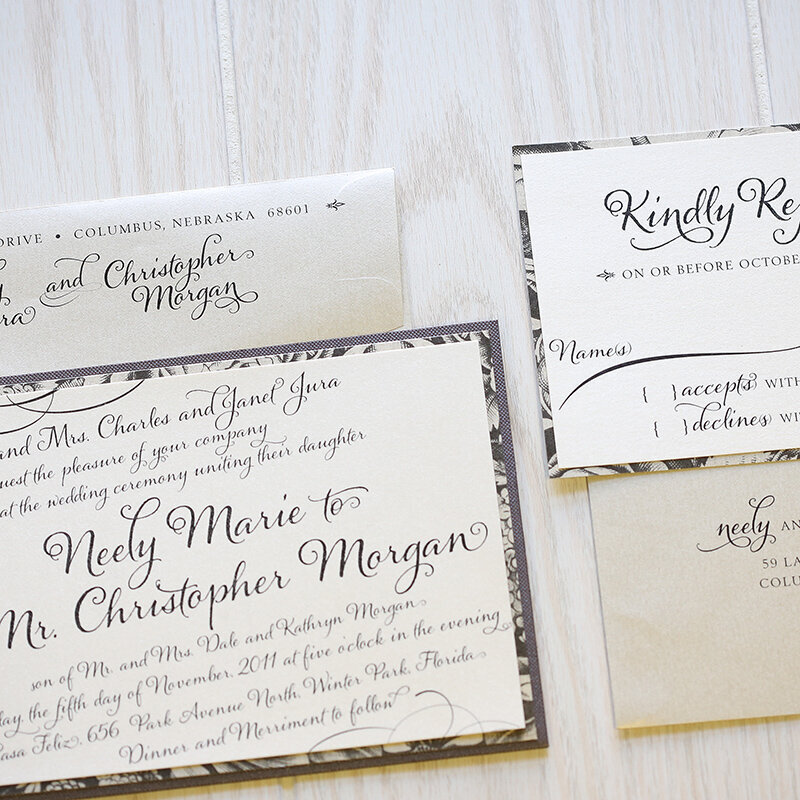 DRIVE • COLUMBUS, NEBRASKA 68601
and Christopher
Morgan
and Mrs. Charles and Janet Jura
the pleasure of your company
at the wedding ceremony uniting their daughter
Neely Marie to
Mr. Christopher Morgan
son of Mr. and Mrs. Dale and Kathryn Morgan
the fifth day of November, 2011 at five o'clock in the evening
Casa Feliz, 656 Park Avenue North, Winter Park, Florida
Dinner and Merriment to follow
Kindly
ON OR BEFORE OCTOBER
Name(s)
{ } accepts WITH
{ } declines WITH
neely
59